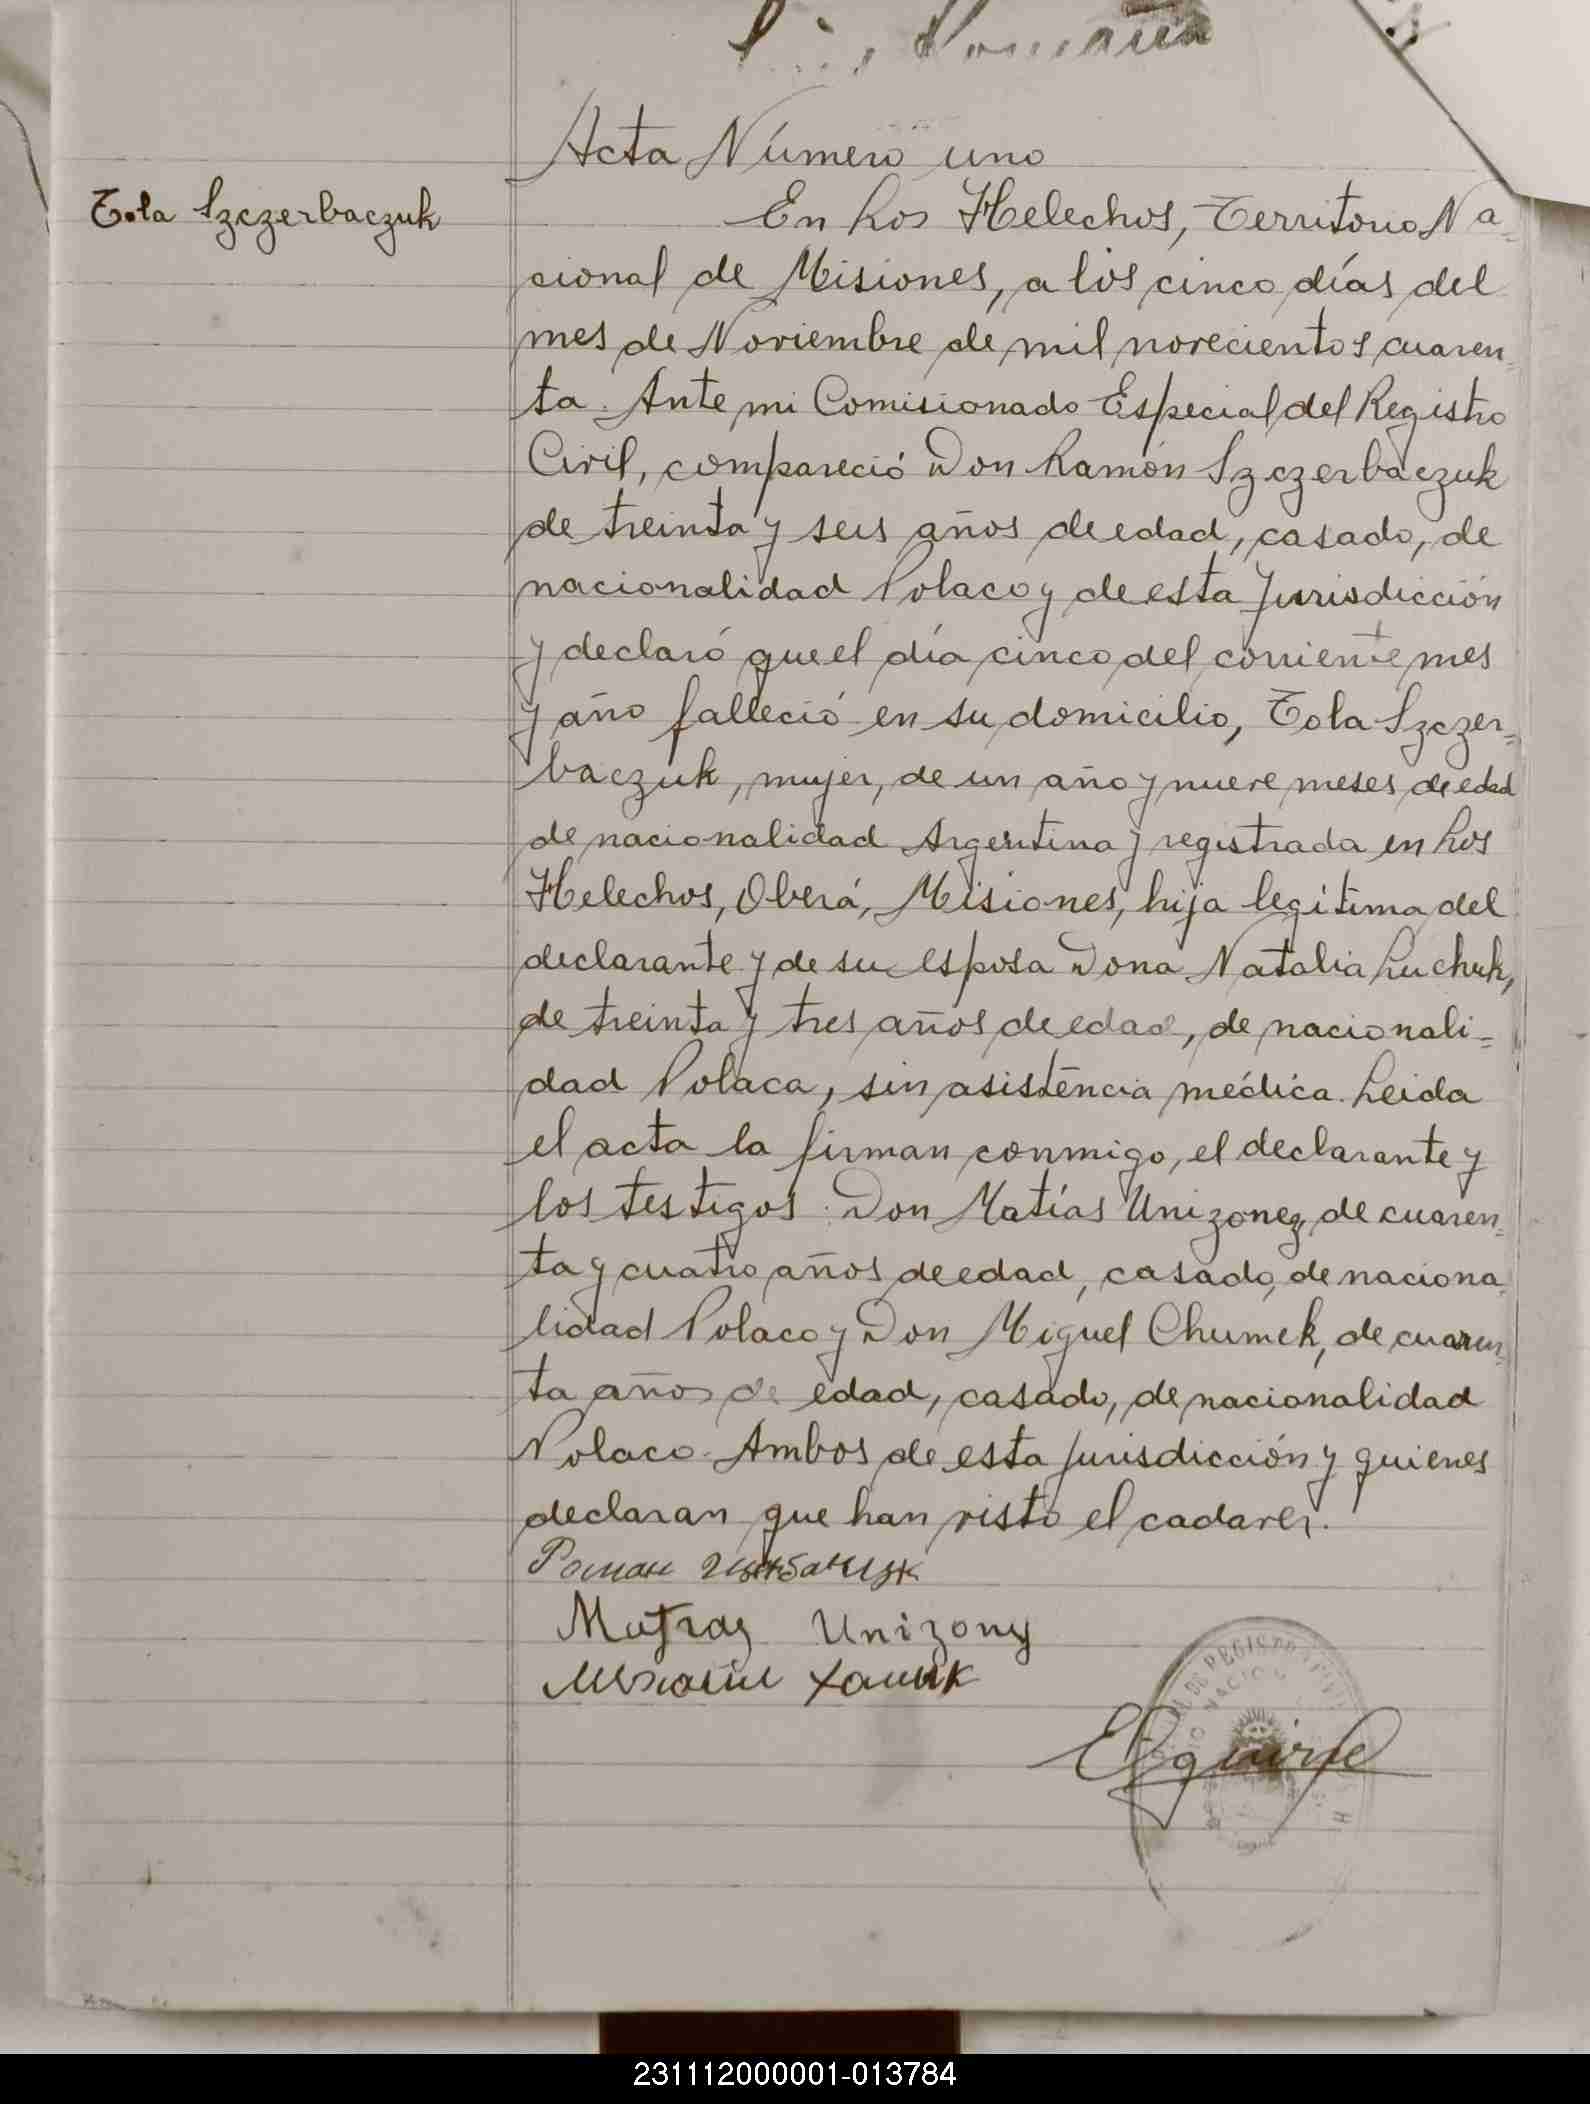 Acta Número uno
Tola Szczerbaczuk
En Los Helechos, Territorio Na=
cional de Misiones, a los cinco días del
mes de Noviembre de mil novecientos cuaren=
ta. Ante mi Comisionado Especial del Registro
Civil, compareció Don Ramón Szczerbaczuk
de treinta y seis años de edad, casado, de
nacionalidad Polaco y de esta Jurisdicción
y declaró que el día cinco del corriente mes
y año falleció en su domicilio, Tola Szczer=
baczuk, mujer, de un año y nueve meses de edad
de nacionalidad Argentina y registrada en Los
Helechos, Oberá, Misiones, hija legítima del
declarante y de su esposa Dona Natalia Luchuk,
de treinta y tres años de edad, de nacionali=
dad Polaca, sin asistencia médica. Leida
el acta la firman conmigo, el declarante y
los testigos: Don Matías Unizonez, de cuaren=
ta y cuatro años de edad, casado, de naciona=
lidad Polaco y Don Miguel Chumek, de cuaren=
ta años de edad, casado, de nacionalidad
Polaco. Ambos de esta jurisdicción y quienes
declaran que han visto el cadaver.
Роман
Unizony
231112000001-013784